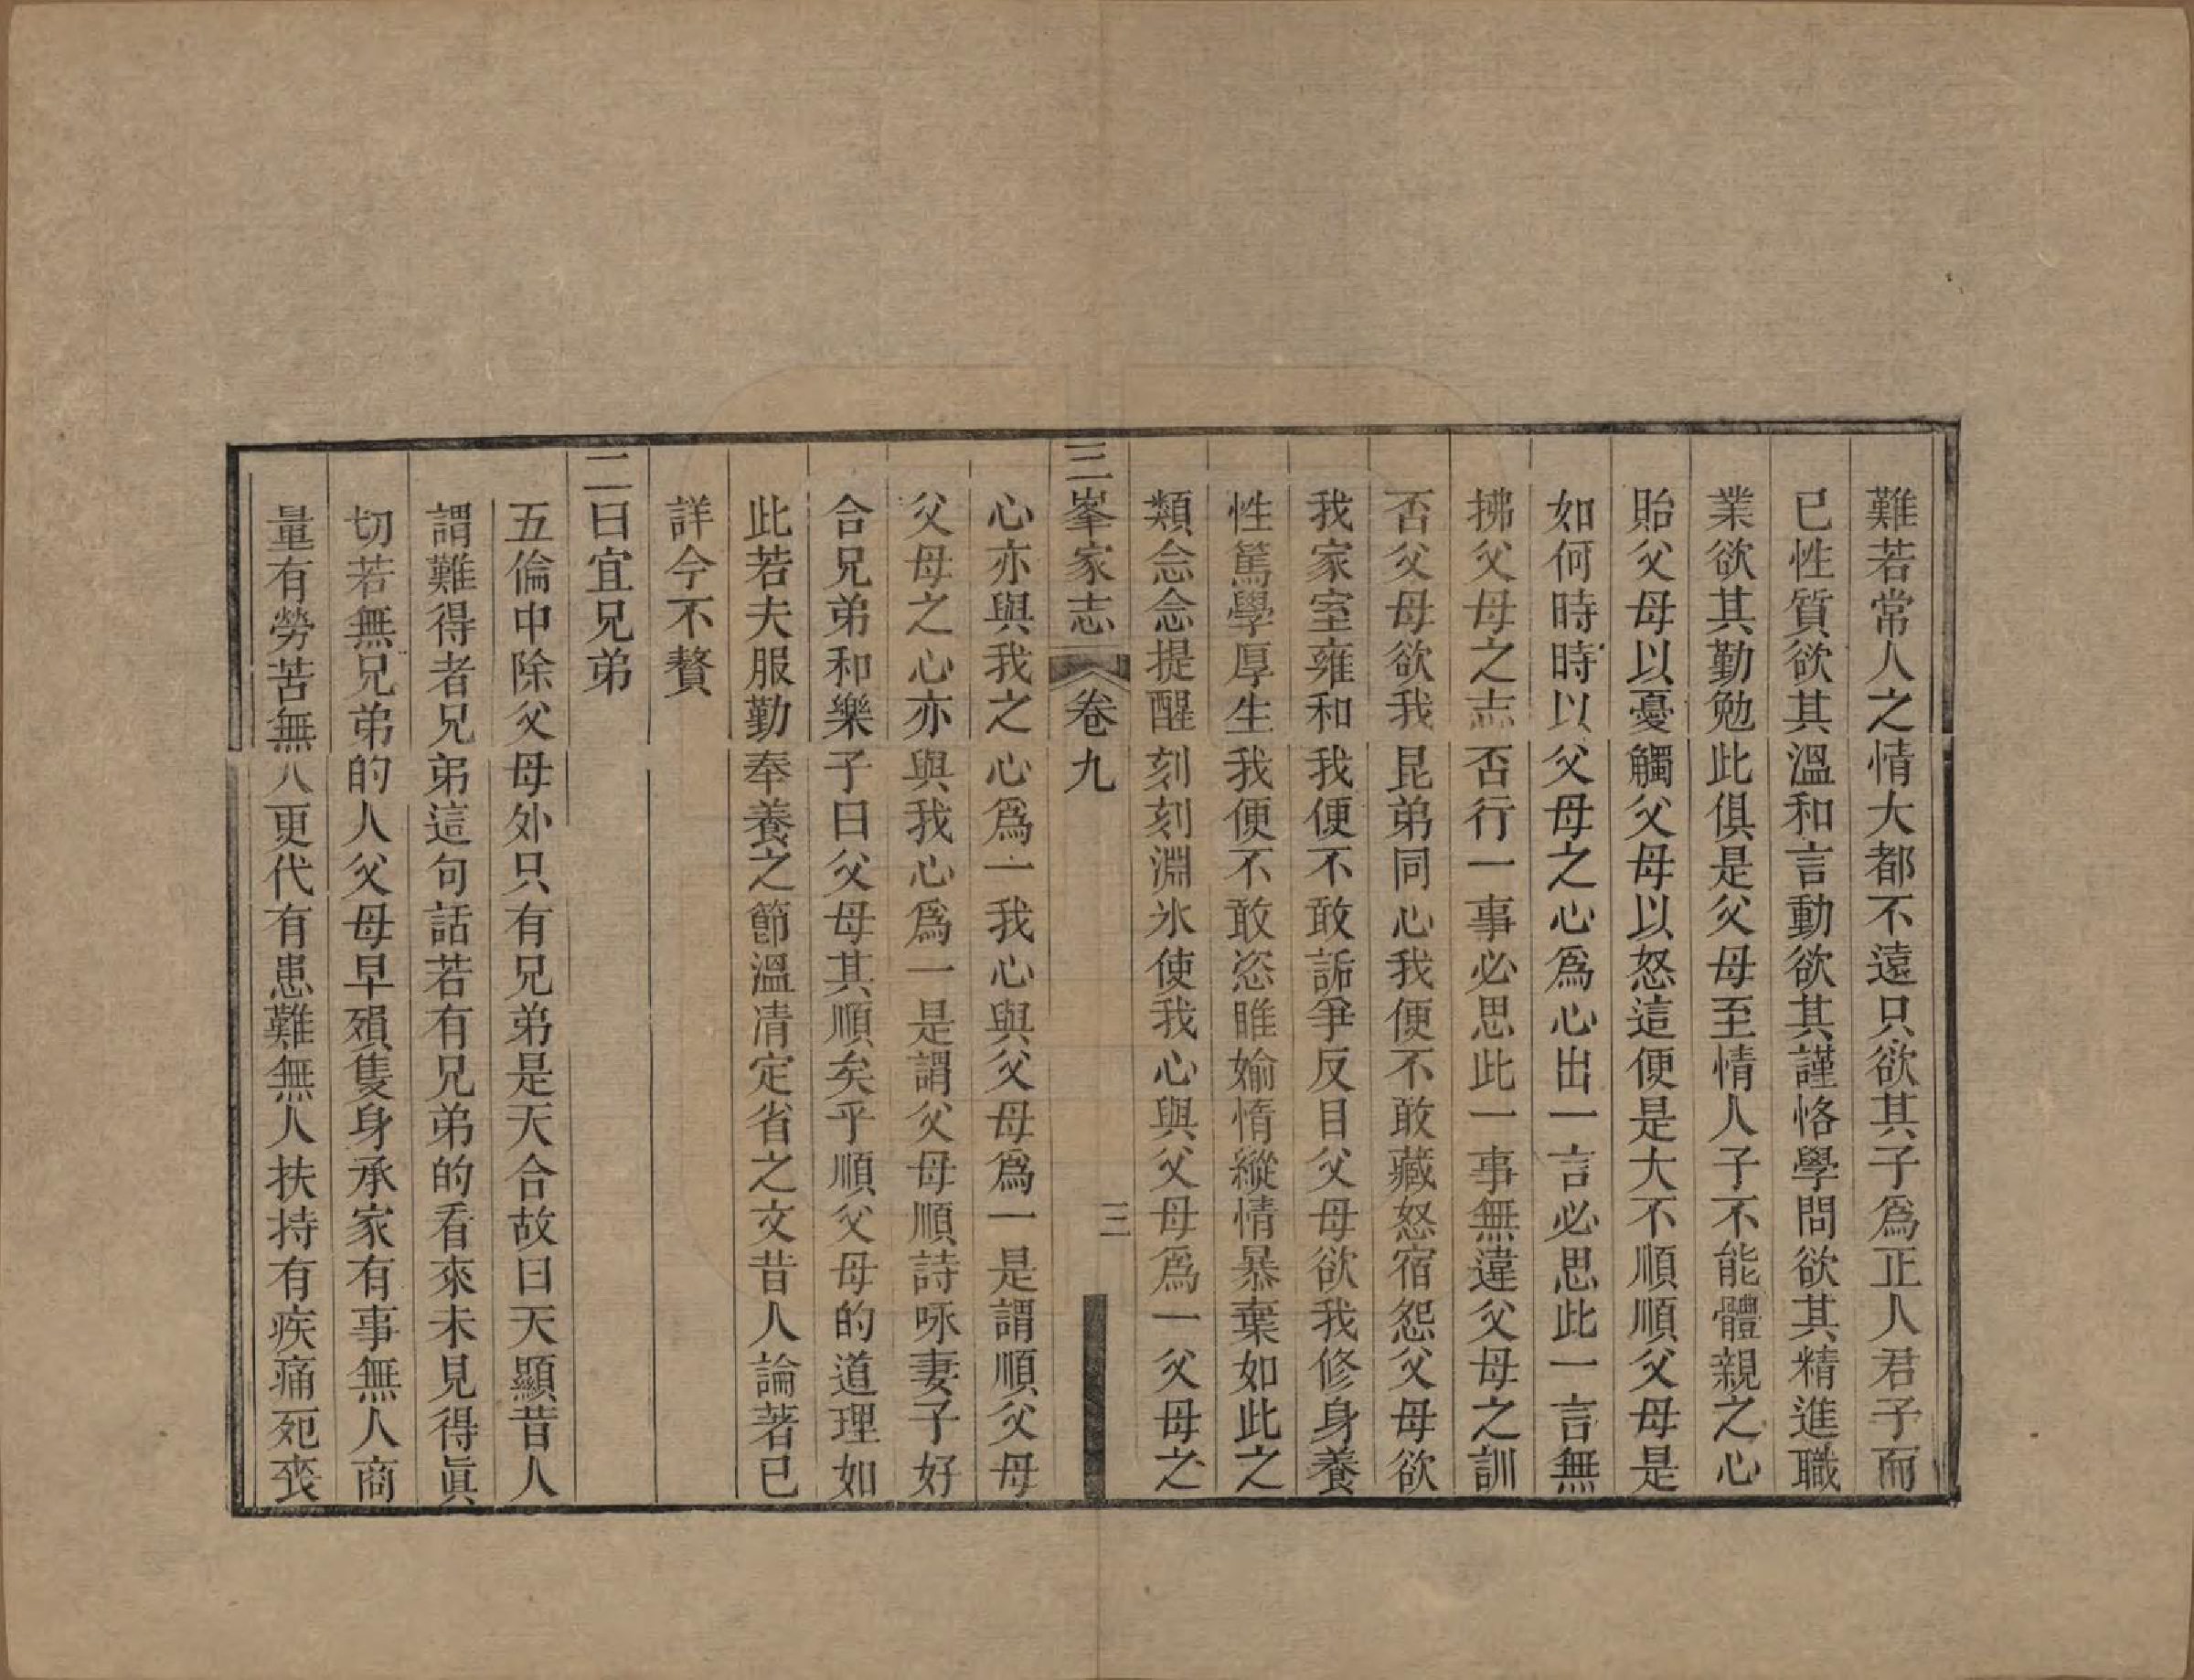 難若常人之情大都不遠只欲其子爲正人君子而
已性質欲其溫和言動欲其謹恪學問欲其精進職
業欲其勤勉此俱是父母至情人子不能體親之心
貽父母以憂觸父母以怒這便是大不順順父母是
如何時時以父母之心爲心出一言必思此一言無
拂父母之志否行一事必思此一事無違父母之訓
否父母欲我昆弟同心我便不敢藏怒宿怨父母欲
我家室雍和我便不敢詬爭反目父母欲我修身養
性篤學厚生我便不敢恣睢媮惰縱情暴棄如此之
類念念提醒刻刻淵氷使我心與父母爲一父母之
三峯家志
卷九
三
心亦與我之心爲一我心與父母爲一是謂順父母
父母之心亦與我心爲一是謂父母順詩咏妻子好
合兄弟和樂子曰父母其順矣乎順父母的道理如
此若夫服勤奉養之節溫凊定省之文昔人論著已
詳今不贅
二曰宜兄弟
五倫中除父母外只有兄弟是天合故曰天顯昔人
謂難得者兄弟這句話若有兄弟的看來未見得眞
切若無兄弟的人父母早殞隻身承家有事無人商
量有勞苦無人更代有患難無人扶持有疾痛死喪